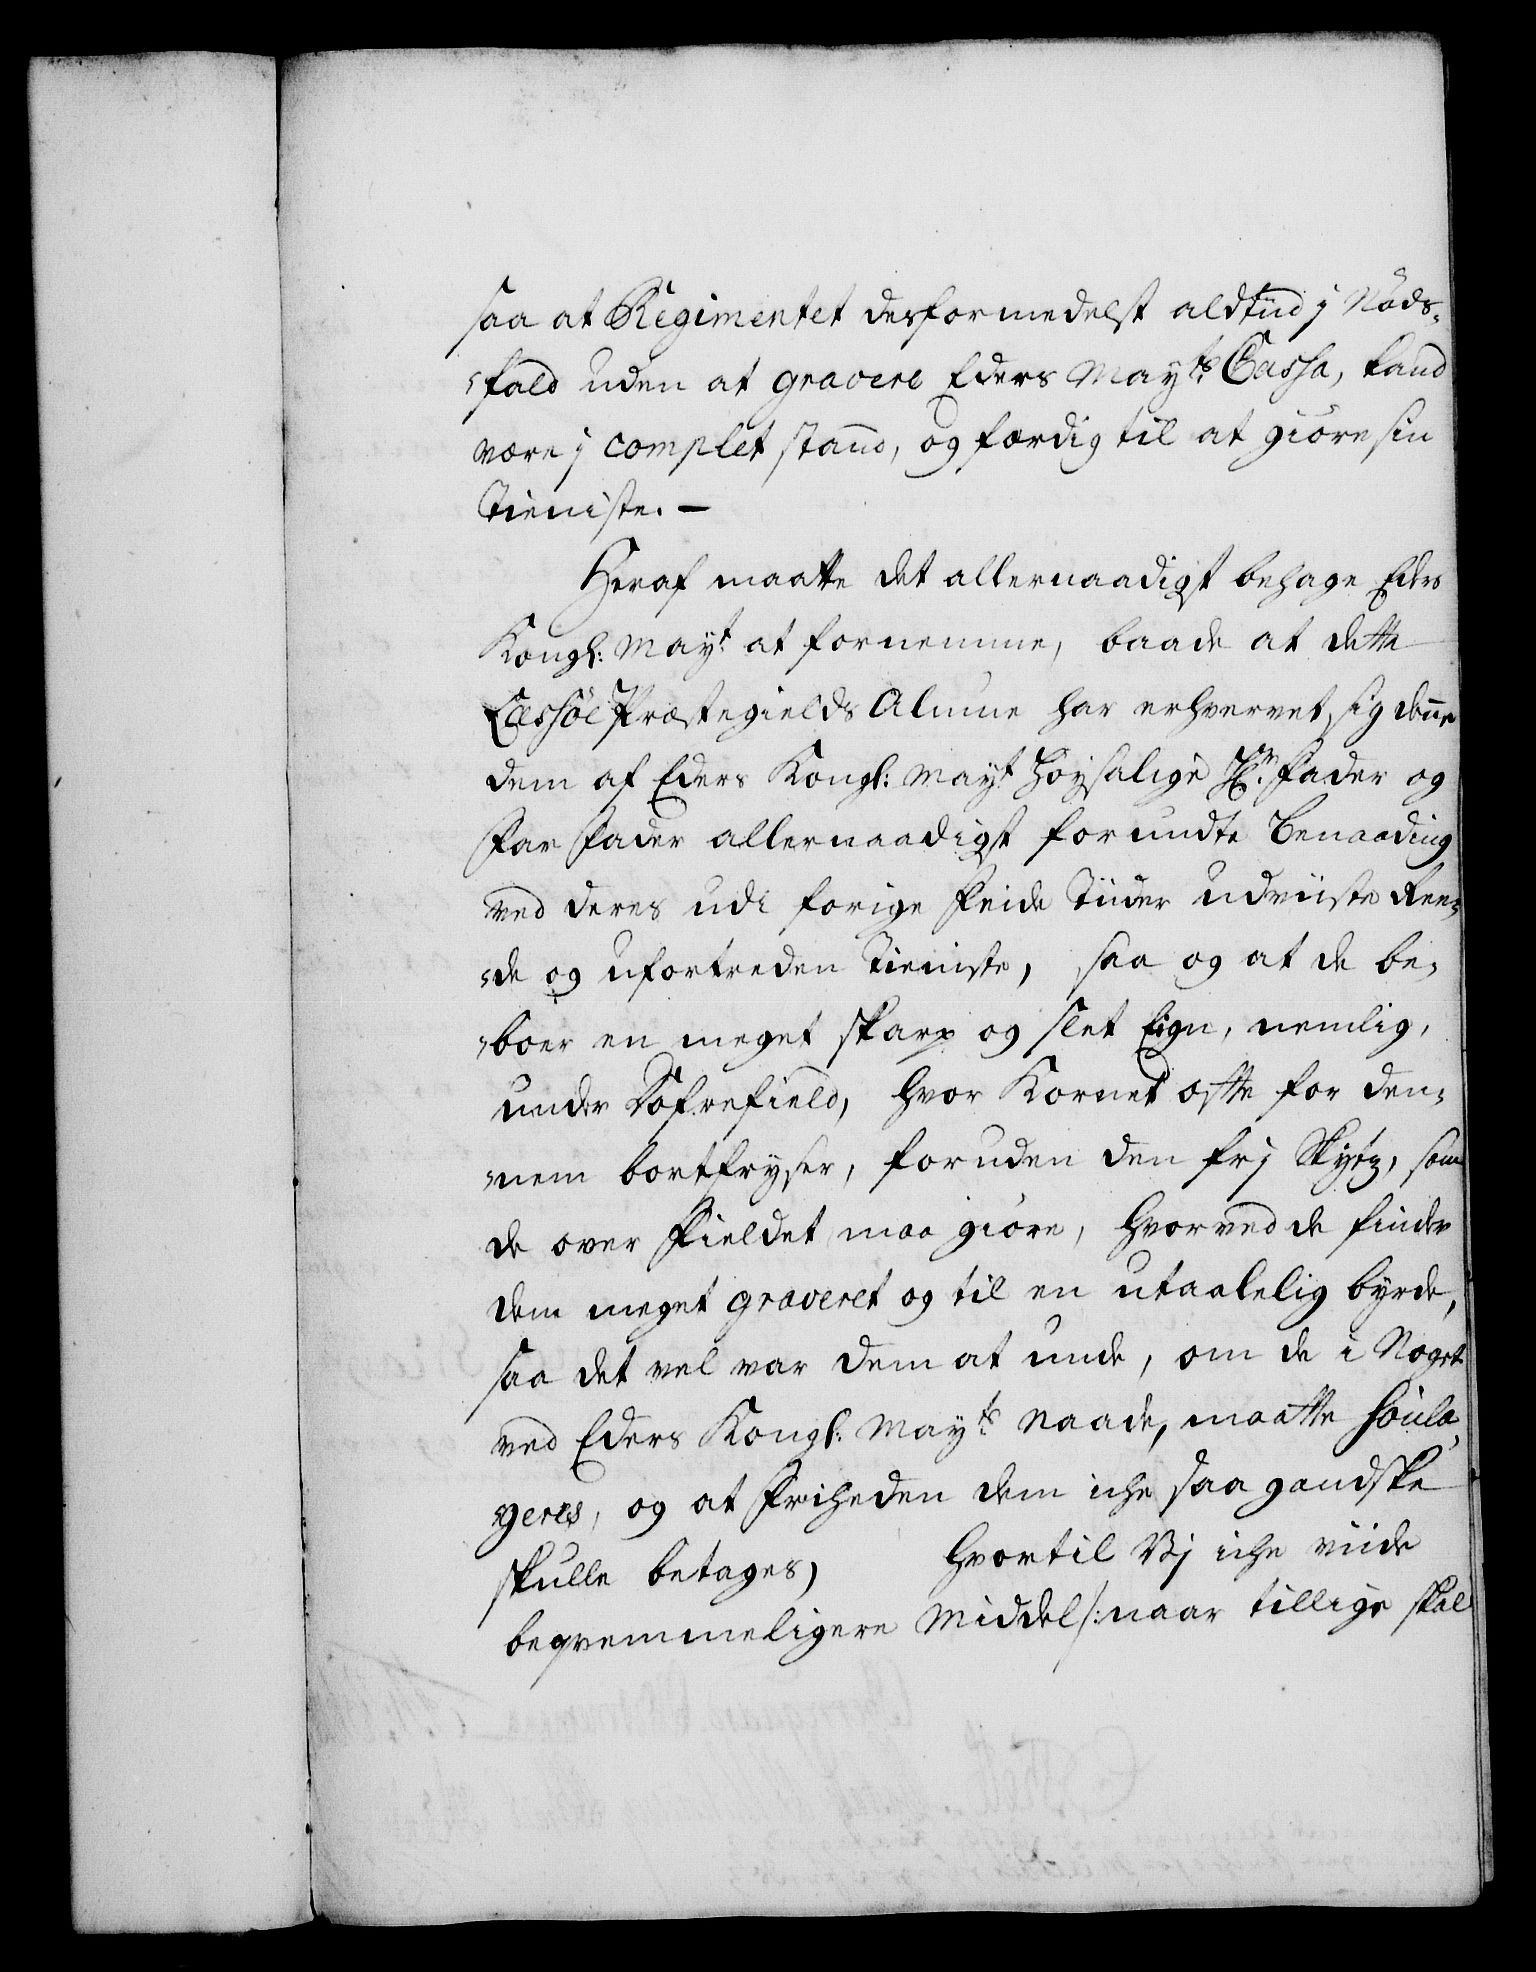 saa at Regimentet desformedelst aldtiid j Nöds-
-fald uden at gravere Eders Mayts Cassa, kand
være j complet stand, og færdig til at giöre sin
Tieniste. —
Heraf maatte det allernaadigst behage Eders
Kongl: Mayt at fornemme, baade at dette
Lessöe Præstegields Almue har erhvervet sig denne
dem af Eders Kongl: Mayt Höysalige Hr Fader og
Far Fader allernaadigst forundte Benaading
ved deres udi forige Feide Tiider udviiste
-de og ufortreden Tieniste, saa og at de be-
-boer en meget skarp og slet Eign, nemlig,
under Dofrefield, hvor Kornet ofte for den-
-nem bortfryser, foruden den frj Skytz, som
de over Fieldet maa giöre, hvorved de finder
dem meget graveret og til en utaalelig byrde,
saa det vel var dem at unde, om de i Noget
ved Eders Kongl: Mayts Naade, maatte soula-
-geres, og at Friheden dem iche saa gandske
skulle betages, hvortil Vj iche viide
beqvemmeligere Middel /: naar tillige skal